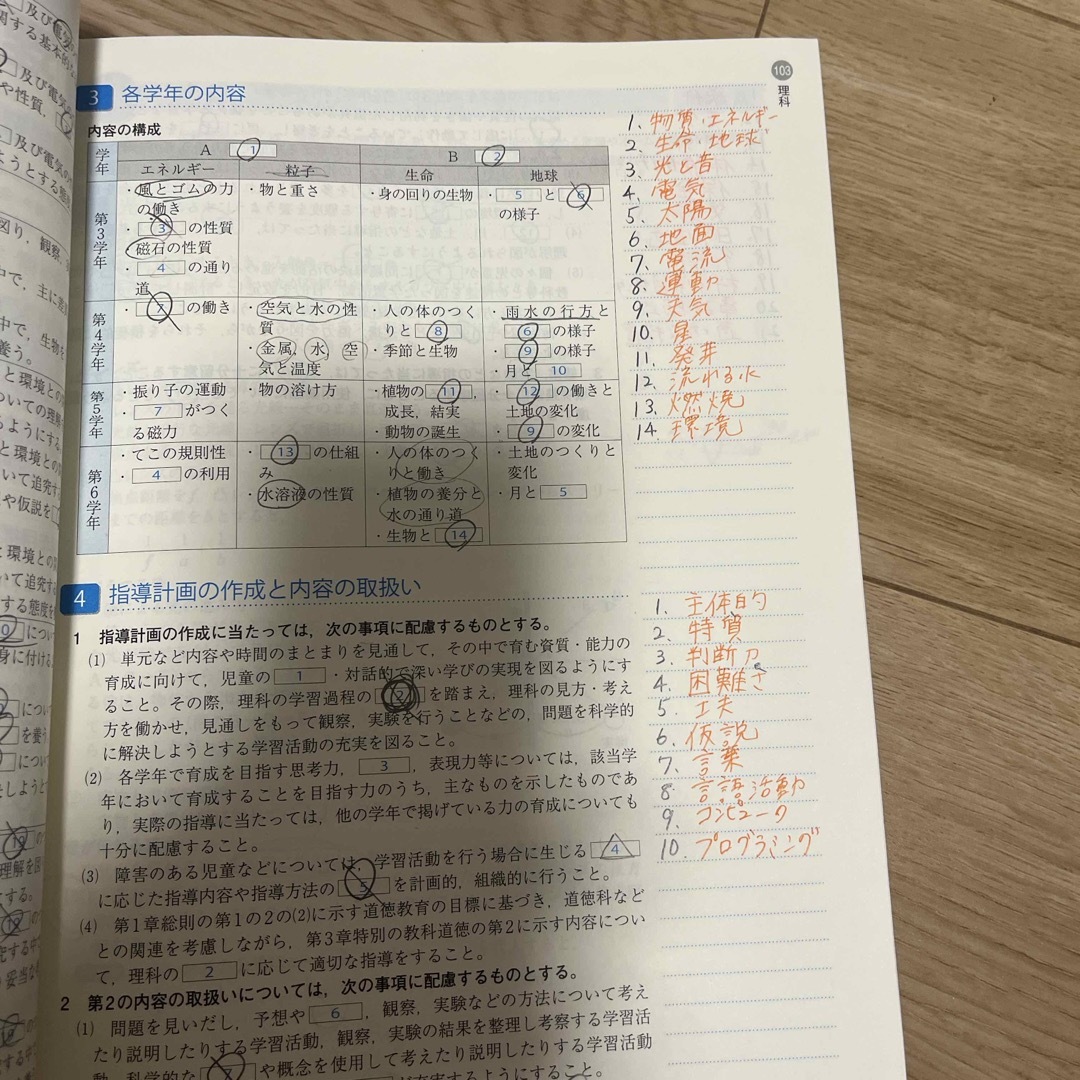 103
理科
3 各学年の内容
内容の構成
学年 A 1 B 2
エネルギー 粒子 生命 地球
第3学年
・風とゴムの力の働き
・3の性質
・磁石の性質
・4の通り道
・物と重さ
・身の回りの生物
・5と6の様子
第4学年
・7の働き
・空気と水の性質
・金属，水，空気と温度
・人の体のつくりと8
・季節と生物
・雨水の行方と6の様子
・9の様子
・月と10
第5学年
・振り子の運動
・7がつくる磁力
・物の溶け方
・植物の11，成長，結実
・動物の誕生
・12の働きと土地の変化
・9の変化
第6学年
・てこの規則性
・4の利用
・13の仕組み
・水溶液の性質
・人の体のつくりと働き
・植物の養分と水の通り道
・生物と14
・土地のつくりと変化
・月と5
1. 物質・エネルギー
2. 生命・地球
3. 光と音
4. 電気
5. 太陽
6. 地面
7. 電流
8. 運動
9. 天気
10. 星
11. 発芽
12. 流れる水
13. 燃焼
14. 環境
4 指導計画の作成と内容の取扱い
1 指導計画の作成に当たっては，次の事項に配慮するものとする。
(1) 単元など内容や時間のまとまりを見通して，その中で育む資質・能力の
育成に向けて，児童の 1 ・対話的で深い学びの実現を図るようにす
ること。その際，理科の学習過程の 2 を踏まえ，理科の見方・考え
方を働かせ，見通しをもって観察，実験を行うことなどの，問題を科学的
に解決しようとする学習活動の充実を図ること。
(2) 各学年で育成を目指す思考力， 3 ，表現力等については，該当学
年において育成することを目指す力のうち，主なものを示したものであ
り，実際の指導に当たっては，他の学年で掲げている力の育成についても
十分に配慮すること。
(3) 障害のある児童などについては，学習活動を行う場合に生じる 4
に応じた指導内容や指導方法の 5 を計画的，組織的に行うこと。
(4) 第1章総則の第1の2の(2)に示す道徳教育の目標に基づき，道徳科など
との関連を考慮しながら，第3章特別の教科道徳の第2に示す内容につい
て，理科の 2 に応じて適切な指導をすること。
2 第2の内容の取扱いについては，次の事項に配慮するものとする。
(1) 問題を見いだし，予想や 6 ，観察，実験などの方法について考え
たり説明したりする学習活動，観察，実験の結果を整理し考察する学習活
動，科学的な 7 や概念を使用して考えたり説明したりする学習活動
が充実するようにすること。
1. 主体的
2. 特質
3. 判断力
4. 困難さ
5. 工夫
6. 仮説
7. 言葉
8. 言語活動
9. コンピュータ
10. プログラミング